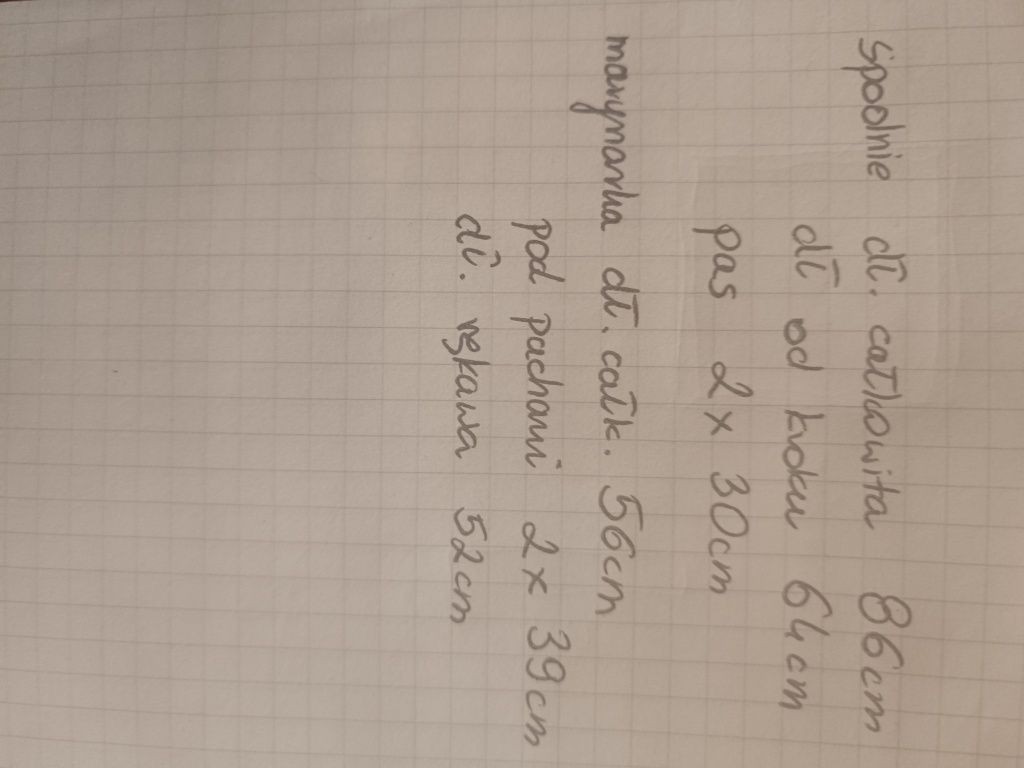 Spodnie dł. catlowita 86cm
dł od kroku 64cm
pas 2x 30cm
marynarka dł. całk. 56cm
pod pachami 2x 39cm
dł. rękawa 52cm